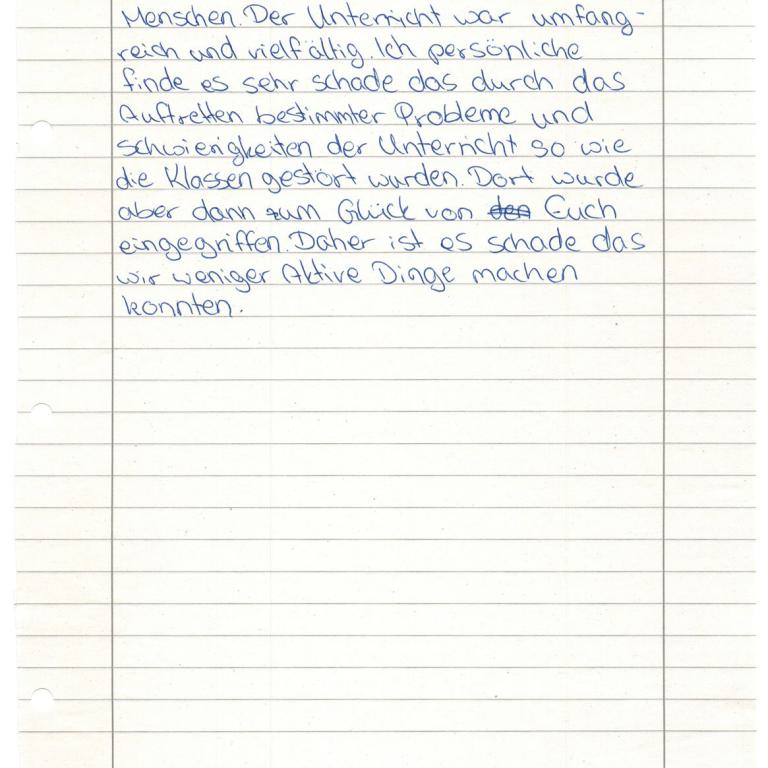 Menschen. Der Unterricht war umfang-
reich und vielfältig. Ich persönliche
finde es sehr schade das durch das
Auftretten bestimmter Probleme und
schwierigkeiten der Unterricht so wie
die Klassen gestört wurden. Dort wurde
aber dann zum Glück von den Euch
eingegriffen. Daher ist es schade das
wir weniger Aktive Dinge machen
konnten.